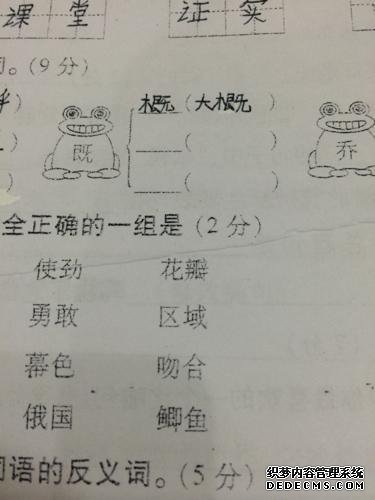 课堂 证实
词。(9分)
乎) 既 概(大概) 乔
( )
) ( )
全正确的一组是(2分)
使劲 花瓣
勇敢 区域
幕色 吻合
俄国 鲫鱼
词语的反义词。(5分)
织梦内容管理系统
DEDECMS.COM